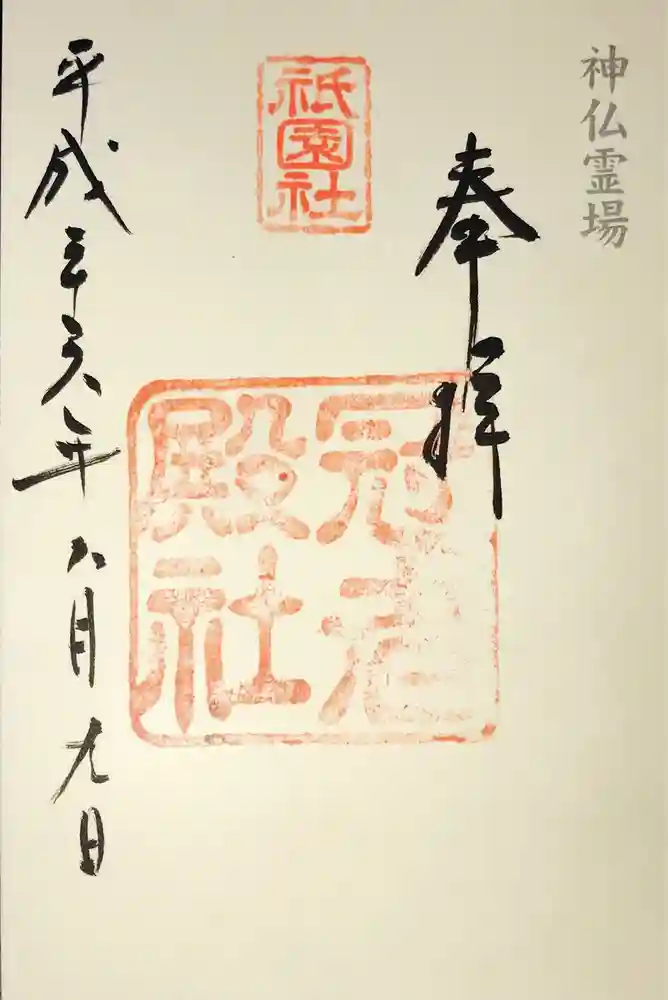 神仏霊場
奉拝
祇園社
冠者
殿社
平成 年 月九日